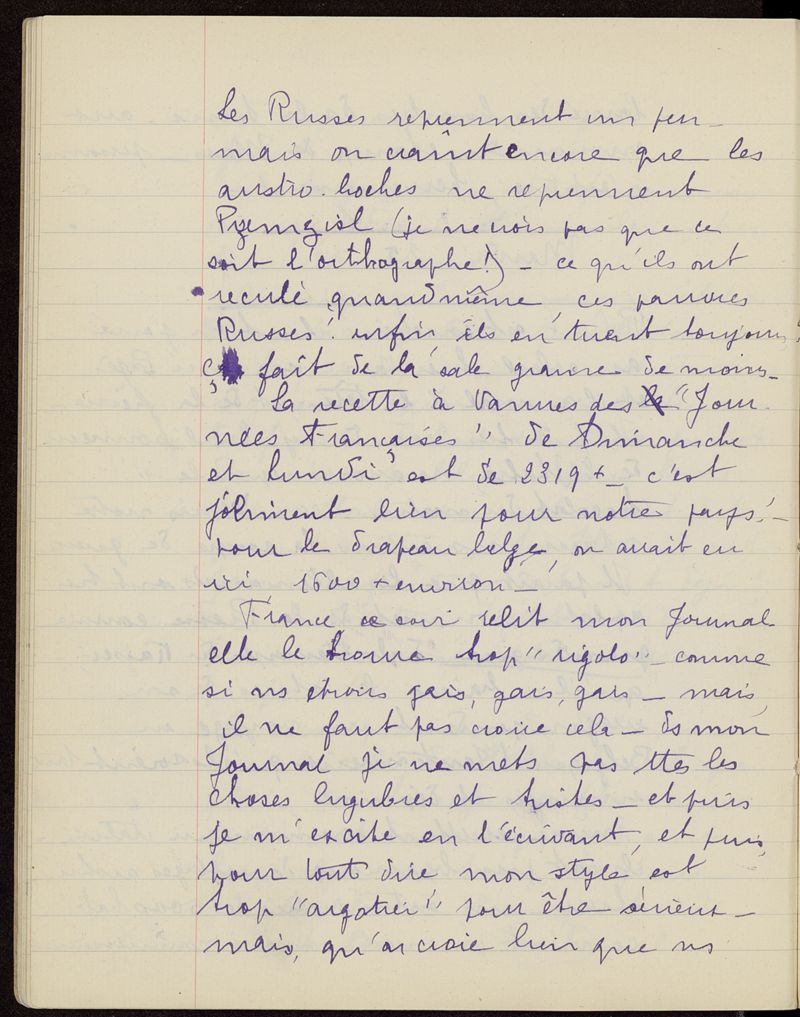 Les Russes reprennent un peu –
mais on craint encore que les
austro-boches ne reprennent
Pzemzisl (je ne crois pas que ce
soit l'orthographe!) – ce qu'ils ont
reculé quand même ces pauvres
Russes! enfin, ils en tuent toujours
ça fait de la sale graine de moins –
La recette à Vannes des "Jour-
nées Françaises" de Dimanche
et Lundi, est de 2319 + – c'est
joliment bien pour notre pays! –
pour le drapeau belge, on avait eu
ici 1600 + environ –
France ce soir relit mon Journal
elle le trouve trop "rigolo" – comme
si ns étions gais, gais, gais – mais,
il ne faut pas croire cela – ds mon
Journal je ne mets pas ttes les
choses lugubres et tristes – et puis
je m'excite en l'écrivant, et puis,
pour tout dire mon style est
trop "argotier" pour être sérieux –
mais, qu'on croie bien que ns